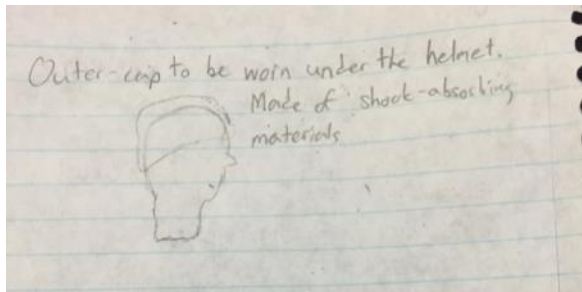 Outer-cap to be worn under the helmet.
Made of shock-absorbing
materials